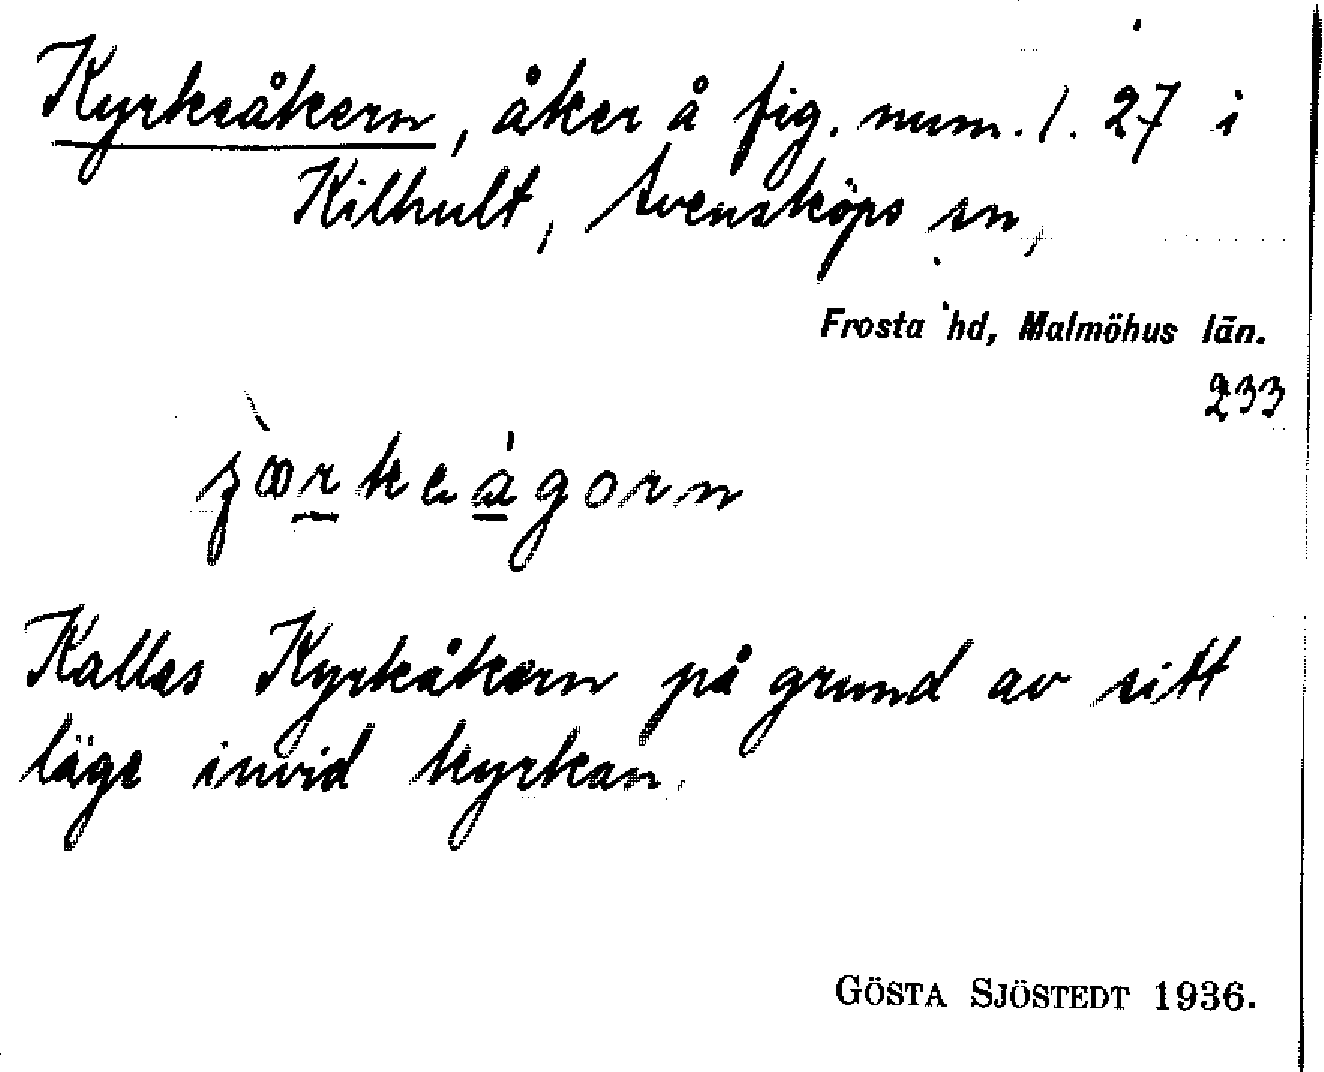 Kyrkeåkern, åker å fig. num. 1. 27 i
Kilhult, Svensköps sn,
Frosta hd, Malmöhus län.
233
Kallas Kyrkåkern på grund av sitt
läge invid kyrkan.
GÖSTA SJÖSTEDT 1936.